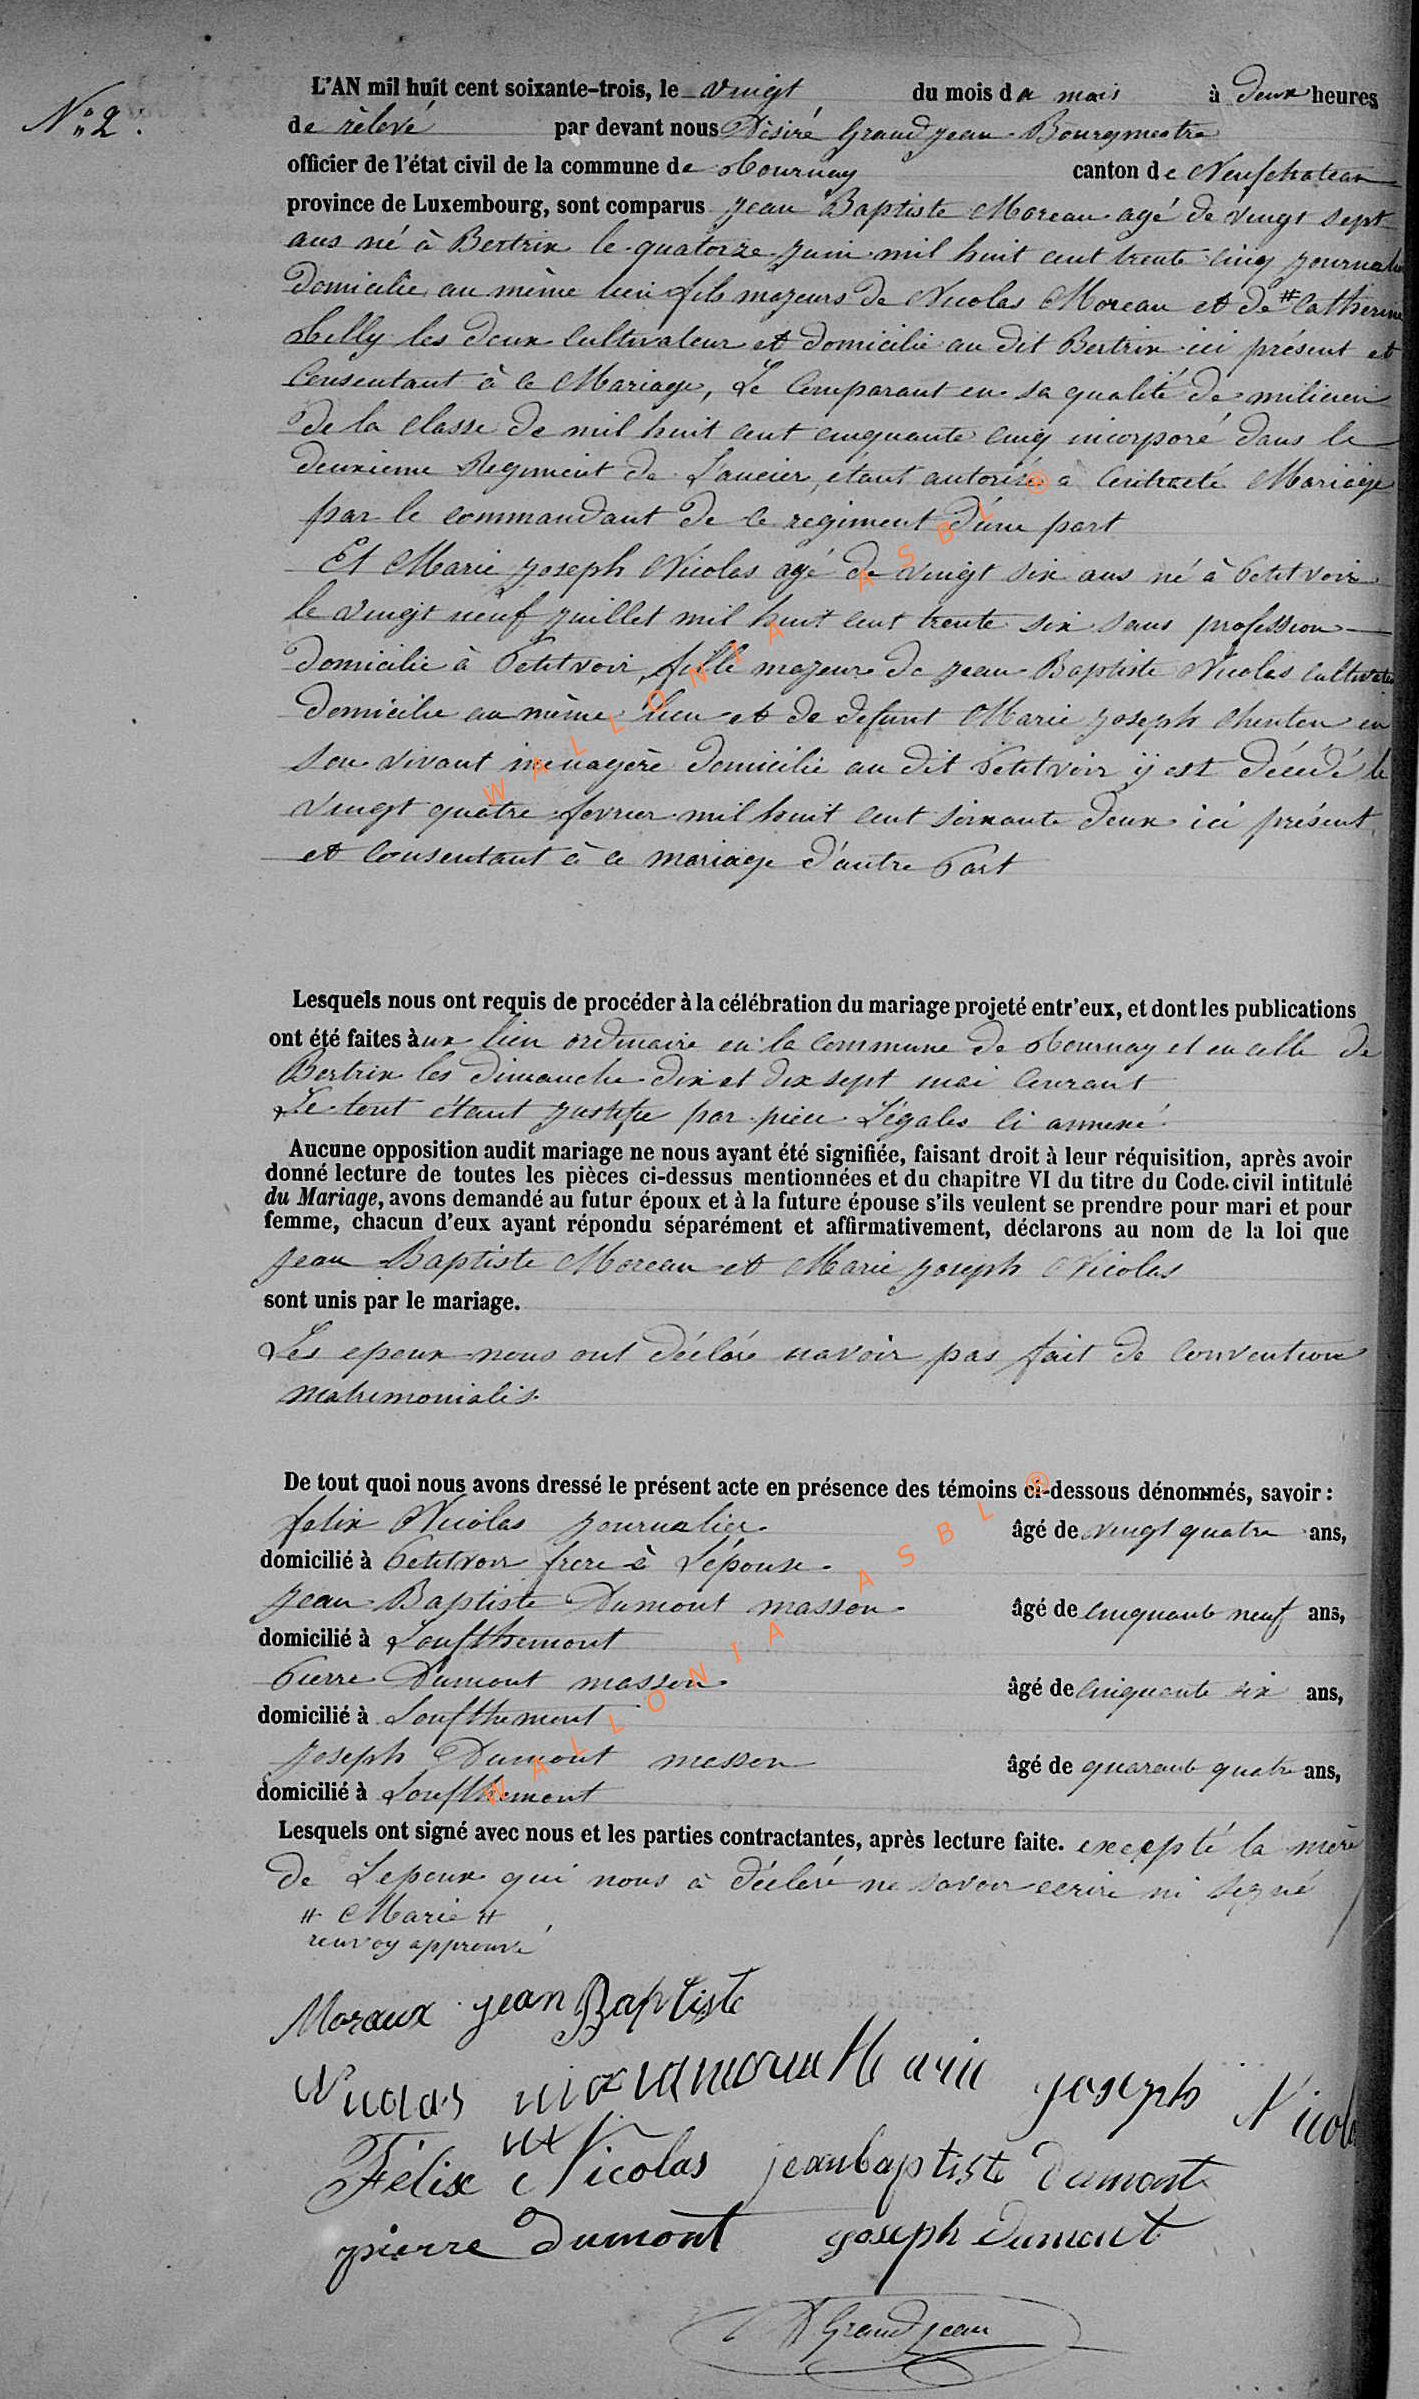 N° 2.
L'AN mil huit cent soixante-trois, le vingt du mois de mais à deux heures
de rélevé par devant nous Désiré Grandjean Bourgmestre
officier de l'état civil de la commune de Tournay canton de Neufchateau
province de Luxembourg, sont comparus Jean Baptiste Moreau agé de vingt sept
ans né à Bertrix le quatorze juin mil huit cent trente cinq journalier
domicilié au même lieu fils majeurs de Nicolas Moreau et de # Catherine
les deux cultivateur et domicilié au dit Bertrix ici présent et
Consentant à ce Mariage, Le Comparant en sa qualité de milicien
de la classe de mil huit cent cinquante cinq incorporé dans le
deuxieme Regiment de Lancier, étant autorisé a Contracté Mariage
par le commandant de ce regiment d'une part
Et Marie Joseph Nicolas agé de vingt six ans né à Petitvoir
le vingt neuf juillet mil huit cent trente six sans profession
domicilié à Petitvoir, fille majeure de Jean Baptiste Nicolas cultivateur
domicilié au même lieu et de defunt Marie Joseph en
son vivant menagère domicilié au dit Petitvoir ÿ est décédé le
vingt quatre fevrier mil huit cent soixante deux ici présent
et Consentant à ce mariage d'autre Part
Lesquels nous ont requis de procéder à la célébration du mariage projeté entr'eux, et dont les publications
ont été faites aux lieu ordinaire en la Commune de Tournay et en celle de
Bertrix les dimanche dix et dix sept mai Courant
Le tout étant justifié par piece Légales ci annexé.
Aucune opposition audit mariage ne nous ayant été signifiée, faisant droit à leur réquisition, après avoir
donné lecture de toutes les pièces ci-dessus mentionnées et du chapitre VI du titre du Code civil intitulé
du Mariage, avons demandé au futur époux et à la future épouse s'ils veulent se prendre pour mari et pour
femme, chacun d'eux ayant répondu séparément et affirmativement, déclarons au nom de la loi que
Jean Baptiste Moreau et Marie Joseph Nicolas
sont unis par le mariage.
Les epoux nous ont déclaré navoir pas fait de Convention
matrimonialis.
De tout quoi nous avons dressé le présent acte en présence des témoins ci-dessous dénommés, savoir :
felix Nicolas journalier âgé de vingt quatre ans,
domicilié à Petitvoir frere à L'épouse.
Jean Baptiste Dumont masson âgé de cinquante neuf ans,
domicilié à Longthemont
Pierre Dumont masson âgé de cinquante six ans,
domicilié à Longthemont
Joseph Dumont masson âgé de quarante quatre ans,
domicilié à Longthemont
Lesquels ont signé avec nous et les parties contractantes, après lecture faite. excepté la mère
de Lepoux qui nous a déclaré ne savoir ecrire ni signé
# Marie #
renvoy approuvé
Moraux jean Baptiste
Nicolas Marie joseph Nicolas
Félix Nicolas jeanbaptiste Dumont
pierre Dumont joseph Dumont
D Grandjean
WALLONIA ASBL ®
WALLONIA ASBL ®